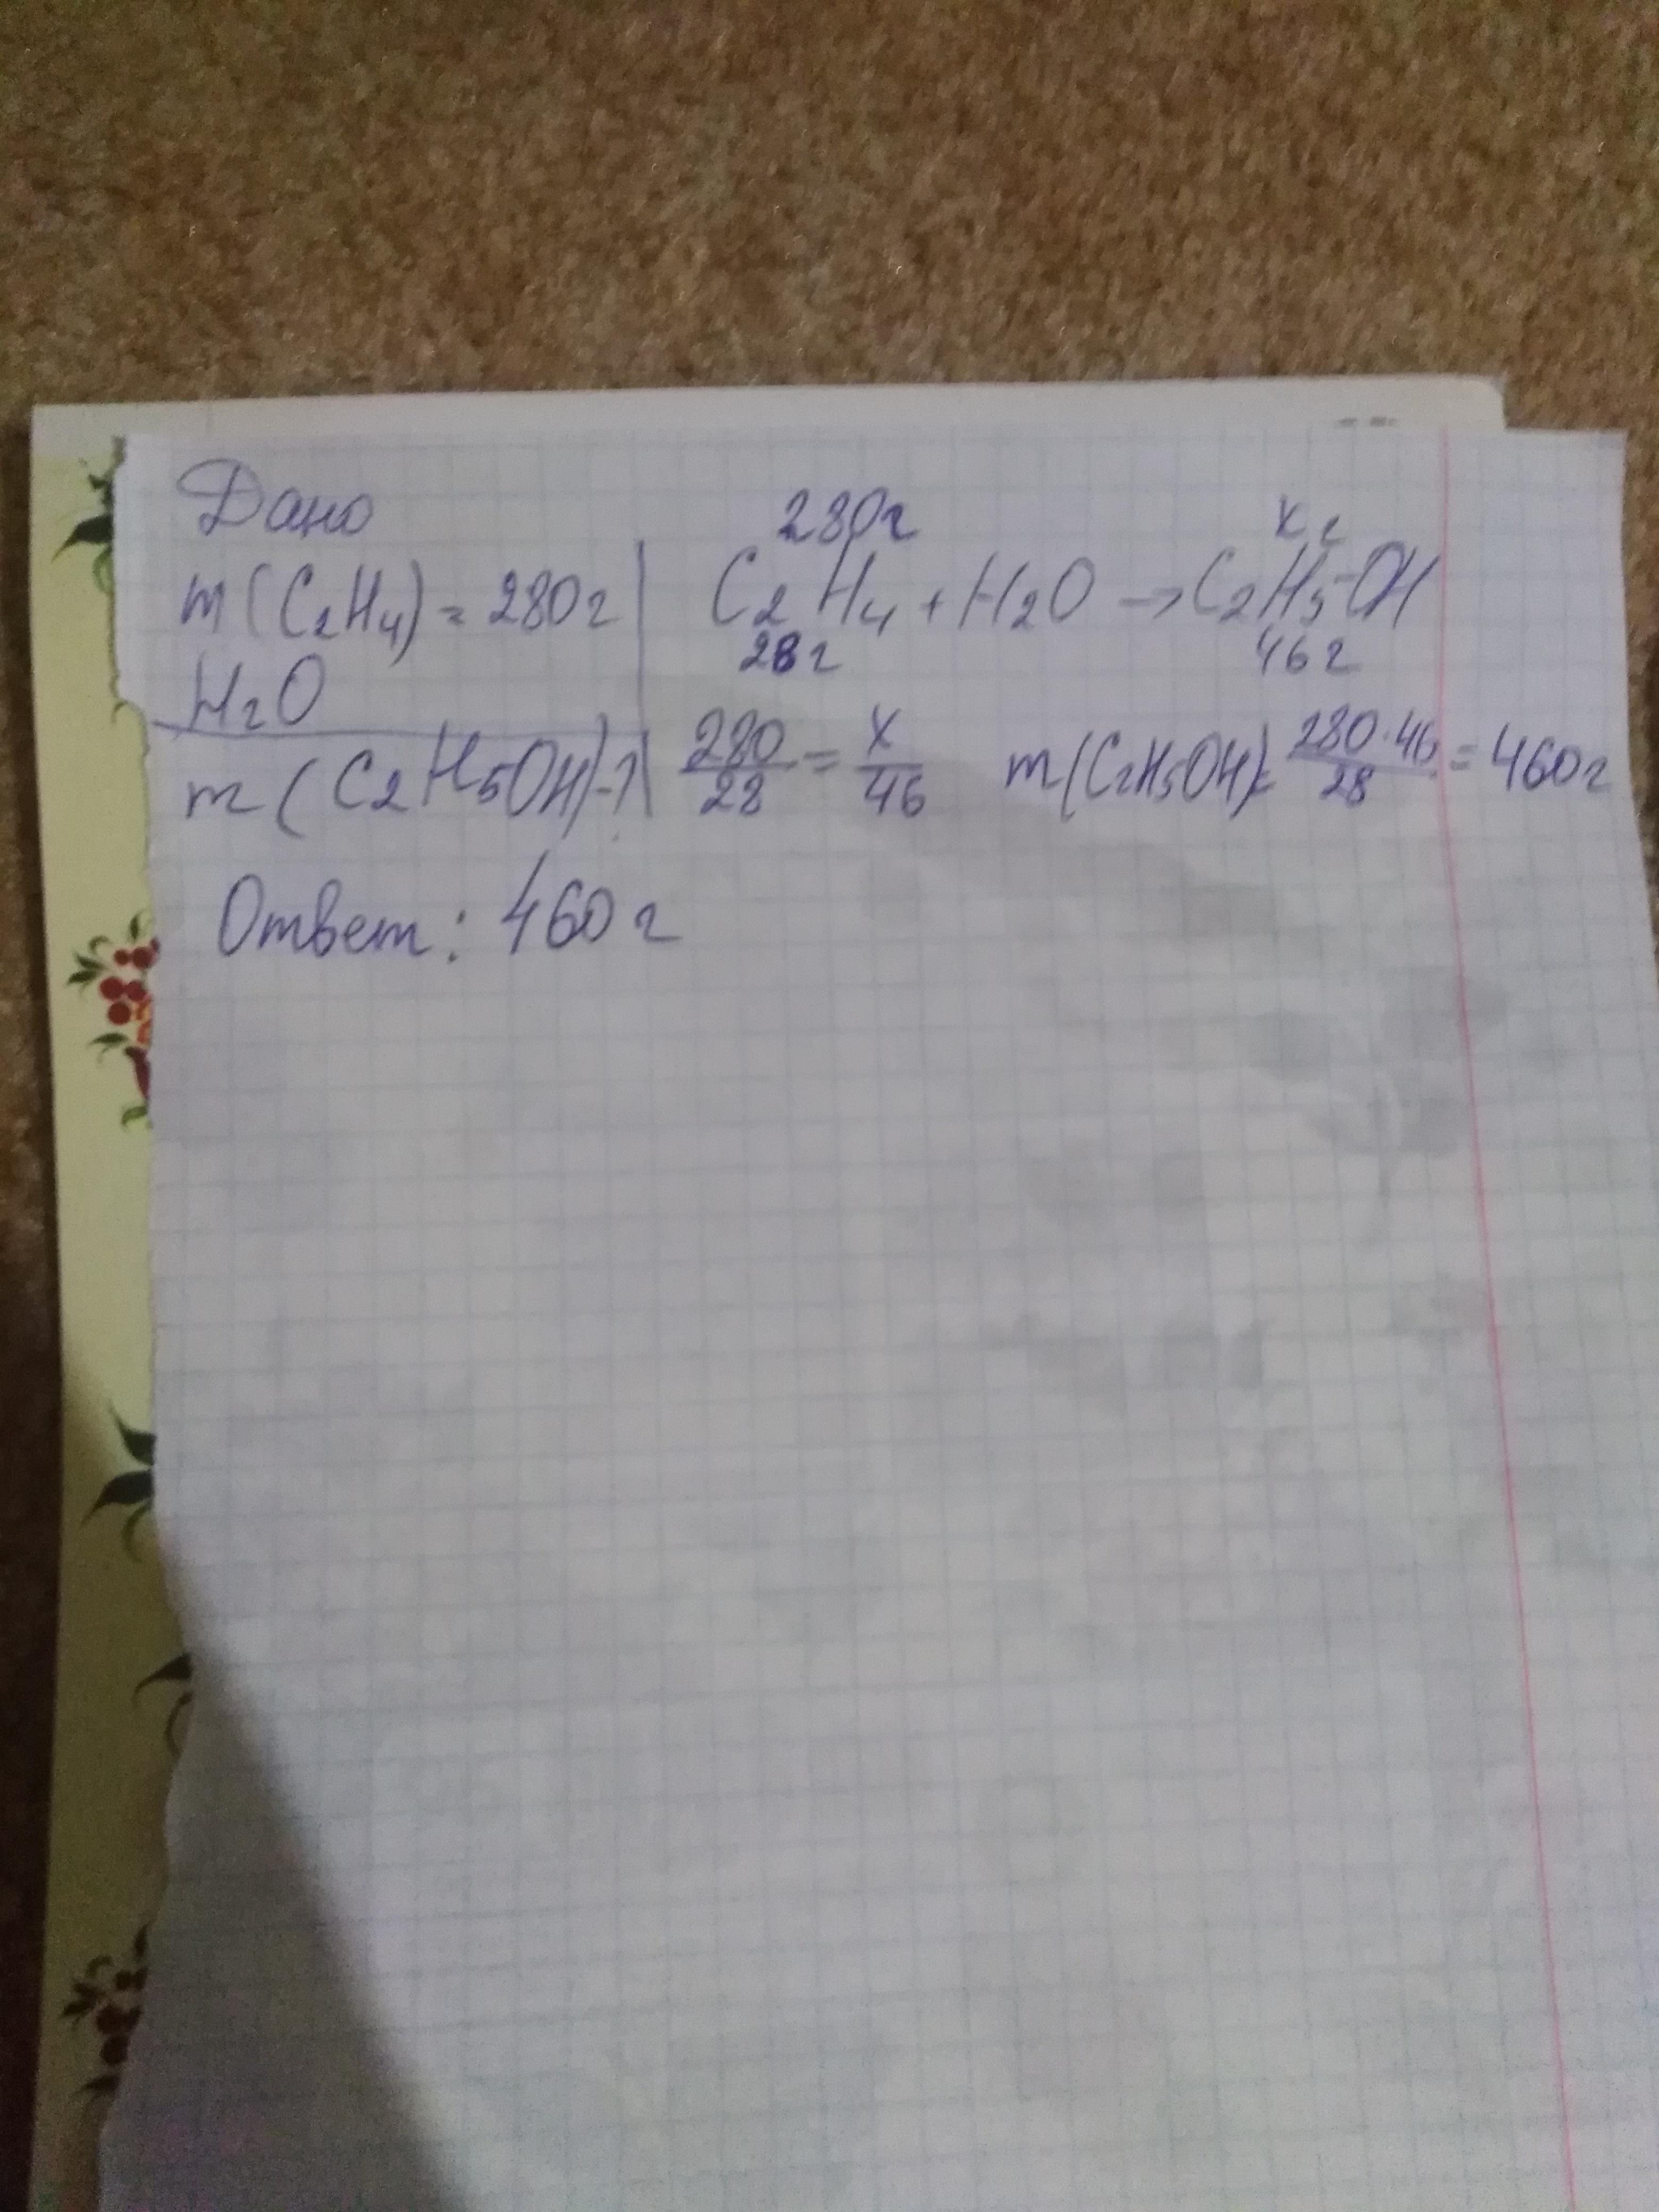 Дано
m(C₂H₄) = 280г
H₂O
m(C₂H₅OH)-?
280г x г
C₂H₄ + H₂O → C₂H₅-OH
28г 46г
280/28 = x/46 m(C₂H₅OH)= 280·46/28 = 460г
Ответ: 460г